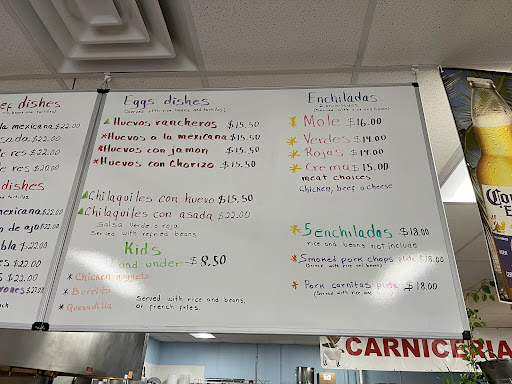 dishes
la mexicana $22.00
asada $22.00
de res $20.00
de res $22.00
dishes
mexicana $22.00
de ajo $22.00
$22.00
$22.00
$22.00
Eggs dishes
(Served with rice beans and tortillas)
Huevos rancheros $15.50
*Huevos a la mexicana $15.50
*Huevos con jamon $15.50
*Huevos con chorizo $15.50
Chilaquiles con huevo $15.50
Chilaquiles con asada $22.00
Salsa Verde o roja
Served with refried beans
Kids
and under $8.50
* Chicken nuggets
* Burrito
* Quesadilla
Served with rice and beans,
or french fries.
Enchiladas
Mole $16.00
Verdes $14.00
Rojas $14.00
Crema $15.00
meat choices
chicken, beef o cheese
5 enchiladas $18.00
rice and beans not include
*Smoked pork chops plate $18.00
(Served with rice and beans)
* Pork carnitas plate $18.00
(Served with rice and
CARNICERIA